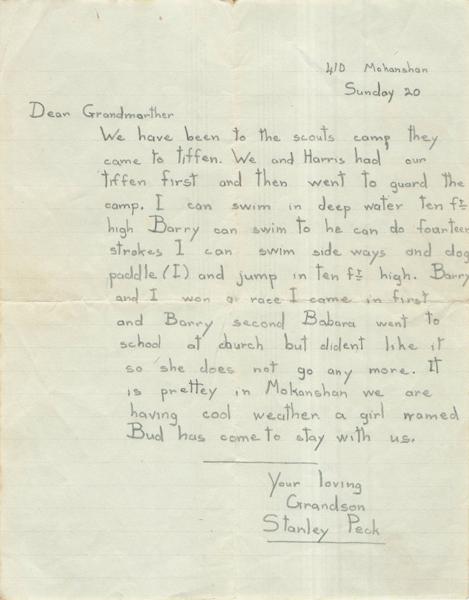 41D Mohanshan
Sunday 20
Dear Grandmarther
We have been to the scouts camp, they
came to tiffen. We and Harris had our
tiffen first and then went to guard the
camp. I can swim in deep water ten ft
high Barry can swim to he can do foarteen
strokes I can swim side ways and dog
paddle (I) and jump in ten ft high. Barry
and I won a race I came in first
and Barry second Babara went to
school at church but dident like it
so she does not go any more. It
is prettey in Mokanshan we are
having cool weather a girl named
Bud has come to stay with us.
Your loving
Grandson
Stanley Peck